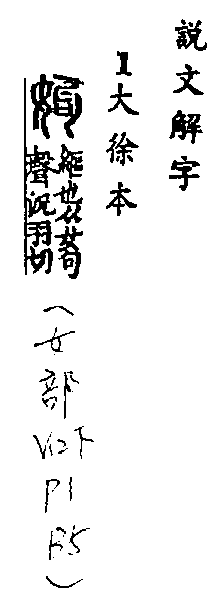 説文解字
1大徐本
姁
嫗也从女句
聲況羽切
(女部V12下P1B5)